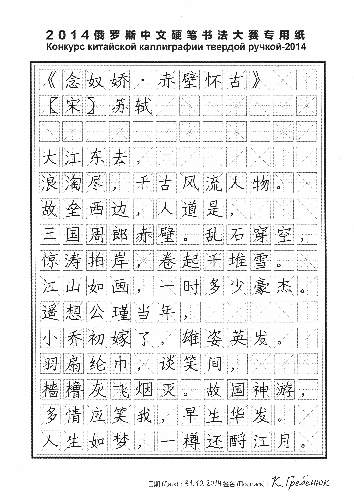 2014俄罗斯中文硬笔书法大赛专用纸
Конкурс китайской каллиграфии твердой ручкой-2014
《念奴娇·赤壁怀古》
【宋】苏轼
大江东去，
浪淘尽，千古风流人物。
故垒西边，人道是，
三国周郎赤壁。乱石穿空，
惊涛拍岸，卷起千堆雪。
江山如画，一时多少豪杰。
遥想公瑾当年，
小乔初嫁了。雄姿英发。
羽扇纶巾，谈笑间，
樯橹灰飞烟灭。故国神游，
多情应笑我，早生华发。
人生如梦，一樽还酹江月。
日期(Дата): 31.10.2014 签名(Подпись) К. Гребенюк